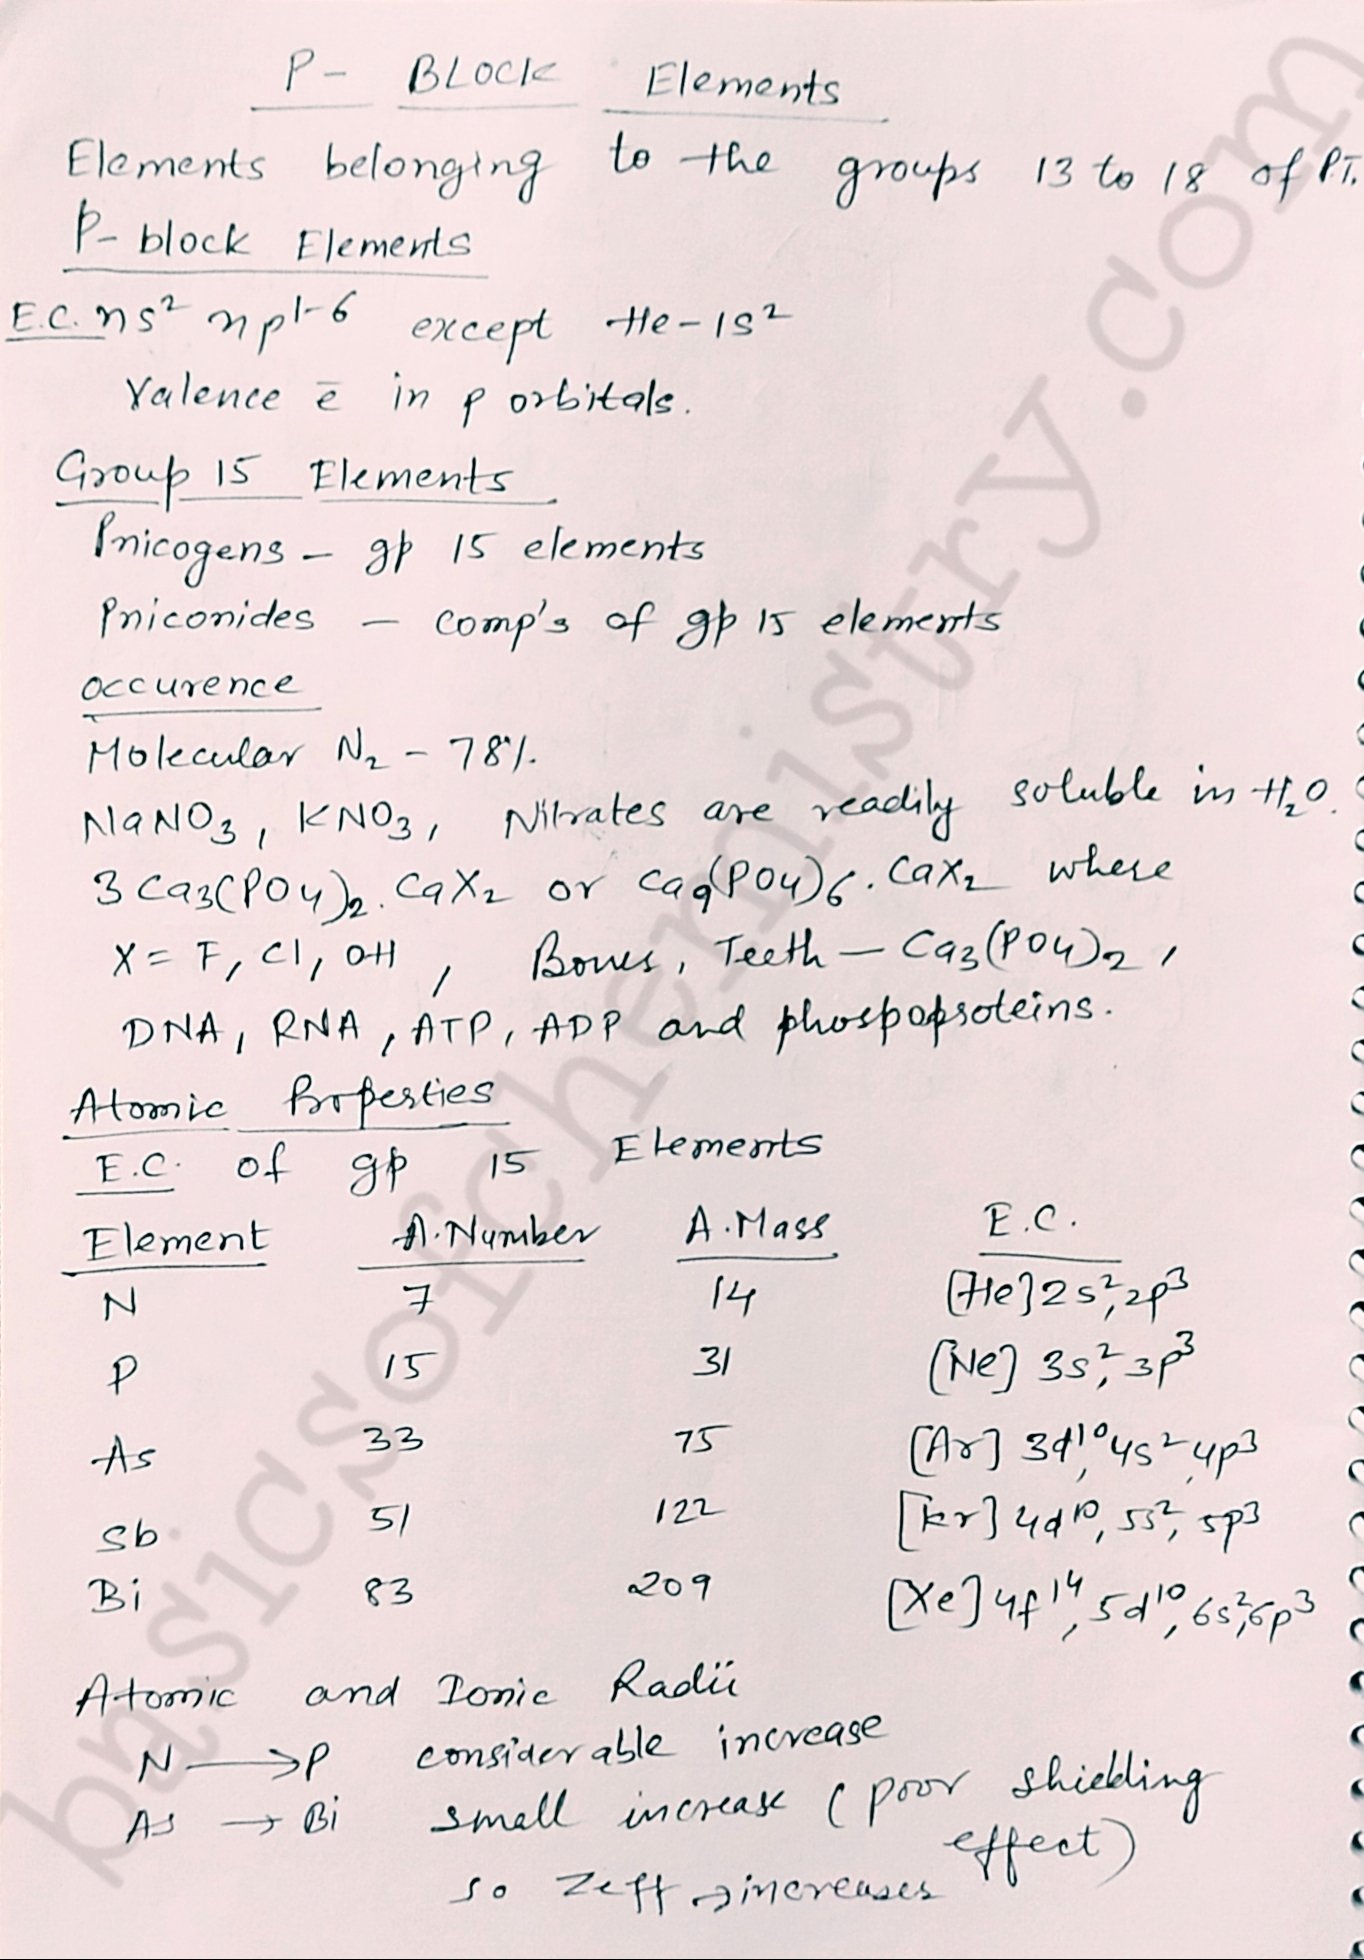 P- BLOCK Elements
Elements belonging to the groups 13 to 18 of P.T.
P-block Elements
E.C. ns² np¹⁻⁶ except He-1s²
Valence ē in p orbitals.
Group 15 Elements
Pnicogens - gp 15 elements
Pniconides - comp's of gp 15 elements
occurence
Molecular N₂ - 78%.
NaNO₃, KNO₃, Nitrates are readily soluble in H₂O.
3 Ca₃(PO₄)₂. CaX₂ or Ca₉(PO₄)₆. CaX₂ where
X = F, Cl, OH, Bones, Teeth - Ca₃(PO₄)₂,
DNA, RNA, ATP, ADP and phospoproteins.
Atomic Properties
E.C. of gp 15 Elements
Element A.Number A.Mass E.C.
N 7 14 [He] 2s², 2p³
P 15 31 [Ne] 3s², 3p³
As 33 75 [Ar] 3d¹⁰, 4s², 4p³
Sb 51 122 [kr] 4d¹⁰, 5s², 5p³
Bi 83 209 [Xe] 4f¹⁴, 5d¹⁰, 6s², 6p³
Atomic and Ionic Radii
N → P considerable increase
As → Bi small increase (poor shielding
effect)
so Zeff → increases
basicsofchemistry.com